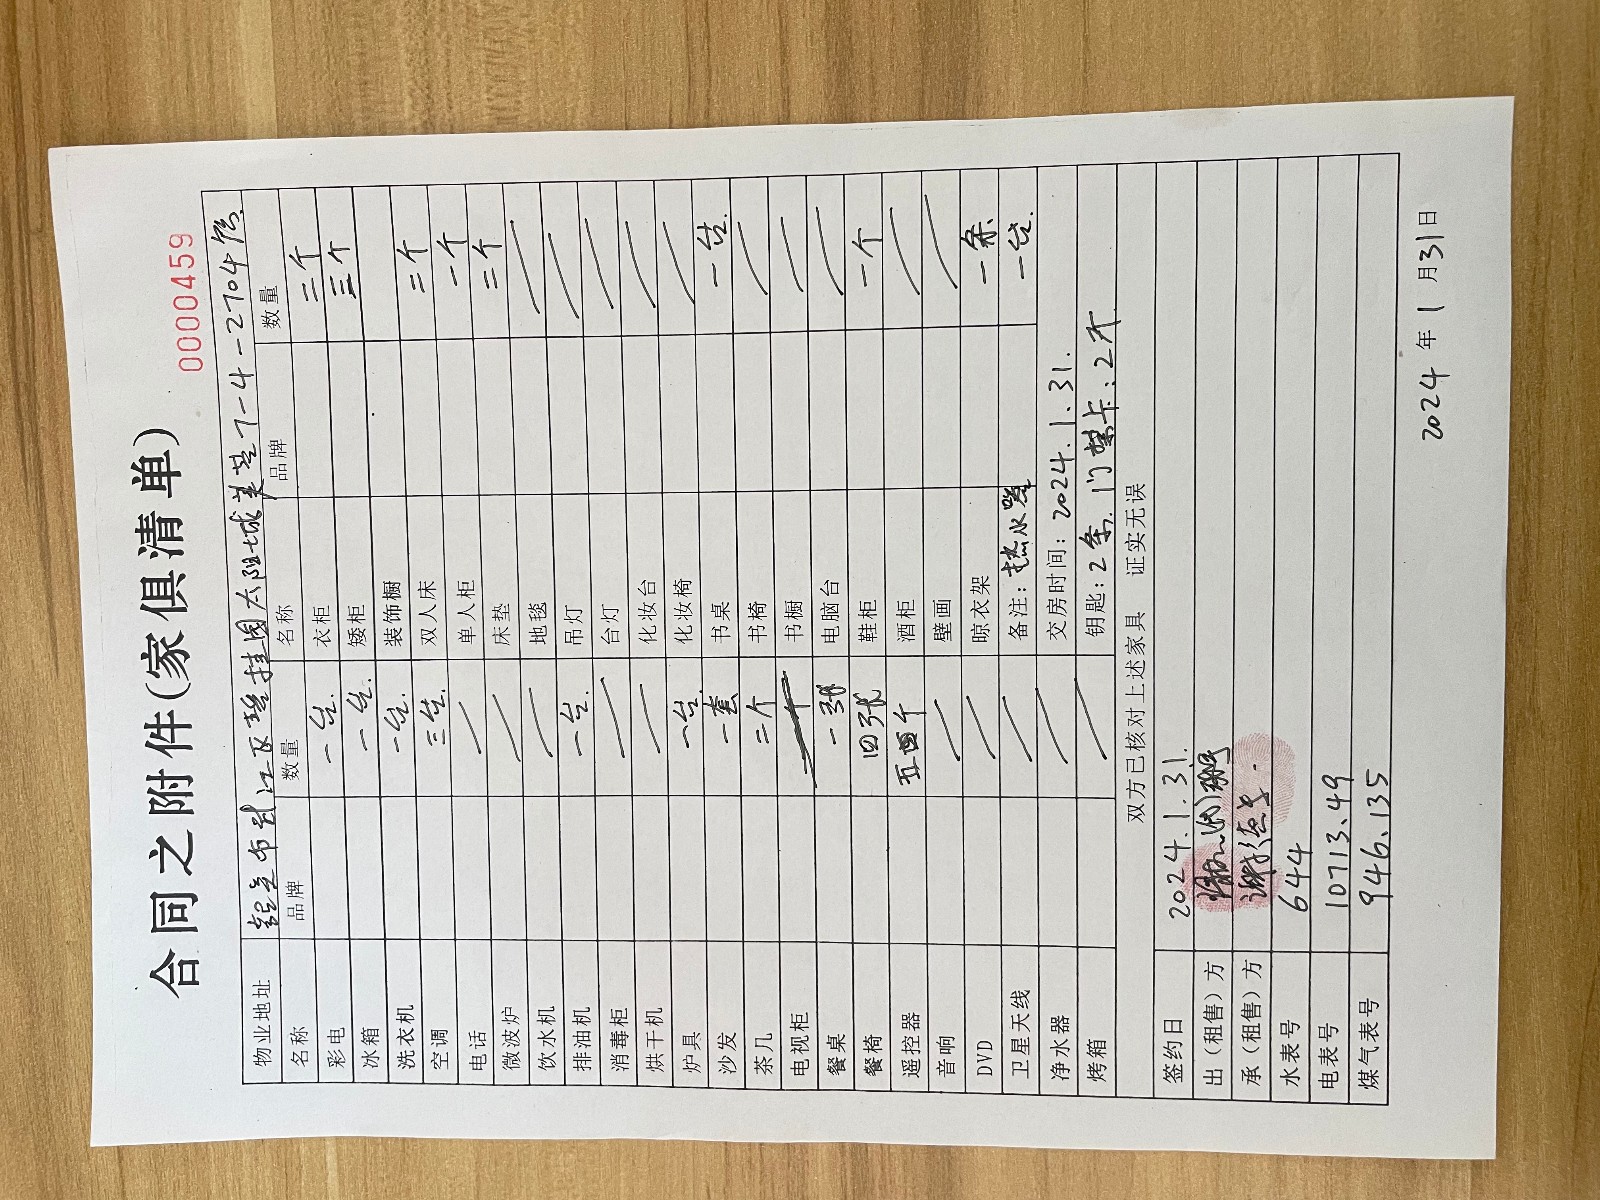 合同之附件(家俱清单)
0000459
物业地址 韶关市武江区碧桂园太阳城 7-4-2704房.
名称 品牌 数量 名称 品牌 数量
彩电 一台. 衣柜 二个
冰箱 一台. 矮柜 三个
洗衣机 一台. 装饰橱
空调 三台. 双人床 二个
电话 / 单人柜 一个
微波炉 / 床垫 二个
饮水机 / 地毯 /
排油机 一台. 吊灯 /
消毒柜 / 台灯 /
烘干机 / 化妆台 /
炉具 一台. 化妆椅 /
沙发 一套 书桌 一台.
茶几 二个 书椅 /
电视柜 书橱 /
餐桌 一张 电脑台 /
餐椅 四张 鞋柜 一个
遥控器 五个 酒柜 /
音响 / 壁画 /
DVD / 晾衣架 一条
卫星天线 / 备注：热水器 一台.
净水器 / 交房时间：2024.1.31.
烤箱 / 钥匙：2条.门禁卡：2个
双方已核对上述家具 证实无误
签约日 2024.1.31.
出（租售）方
承（租售）方
水表号 644
电表号 10713.49
煤气表号 946.135
2024年1月31日